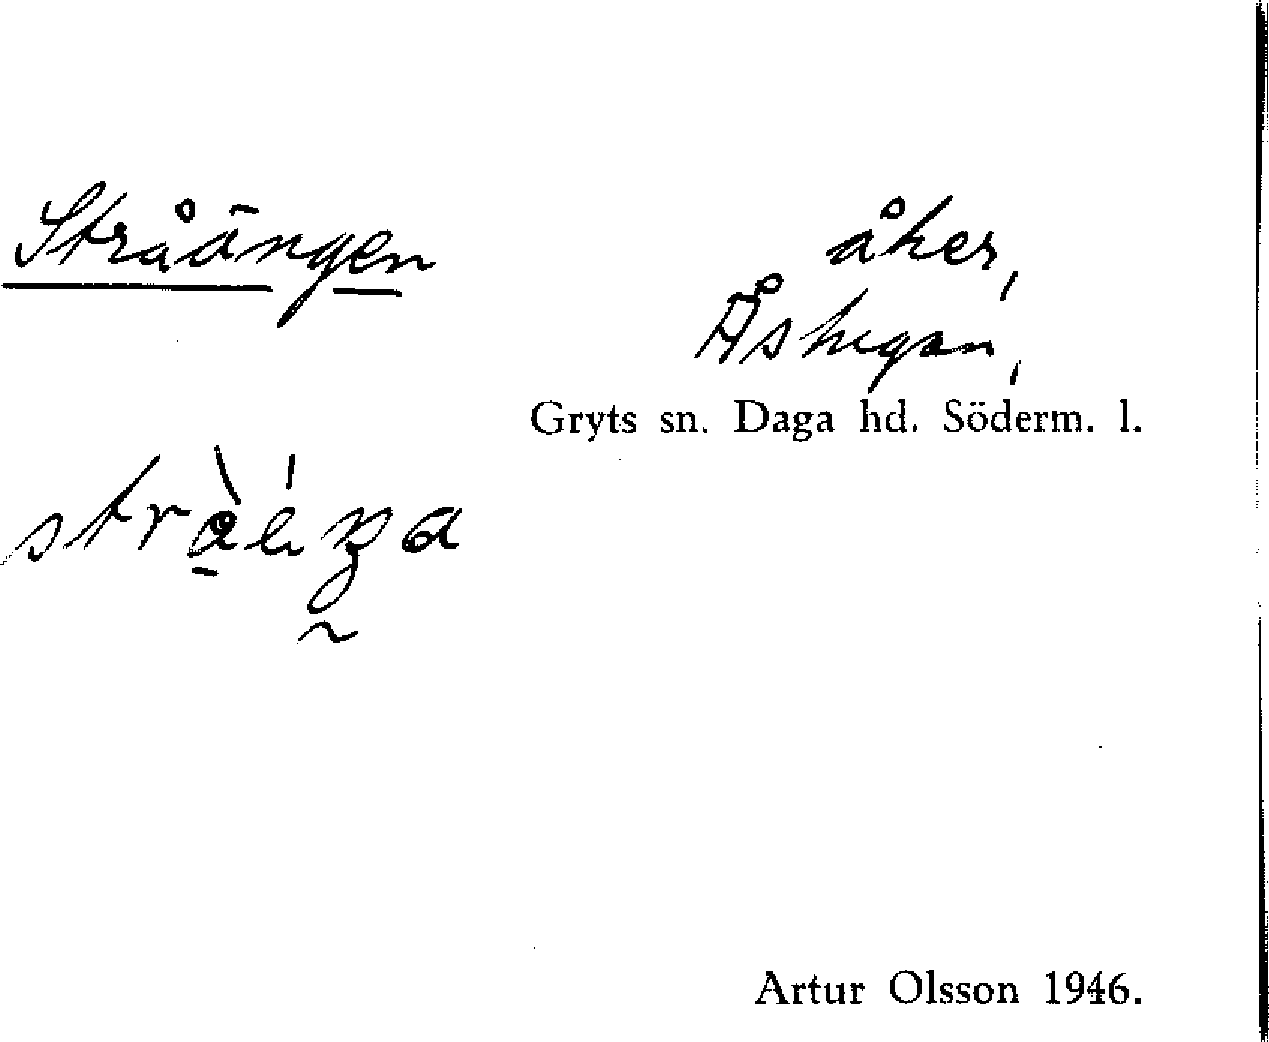 Stråängen
åker,
Åshugan,
Gryts sn. Daga hd. Söderm. l.
Artur Olsson 1946.